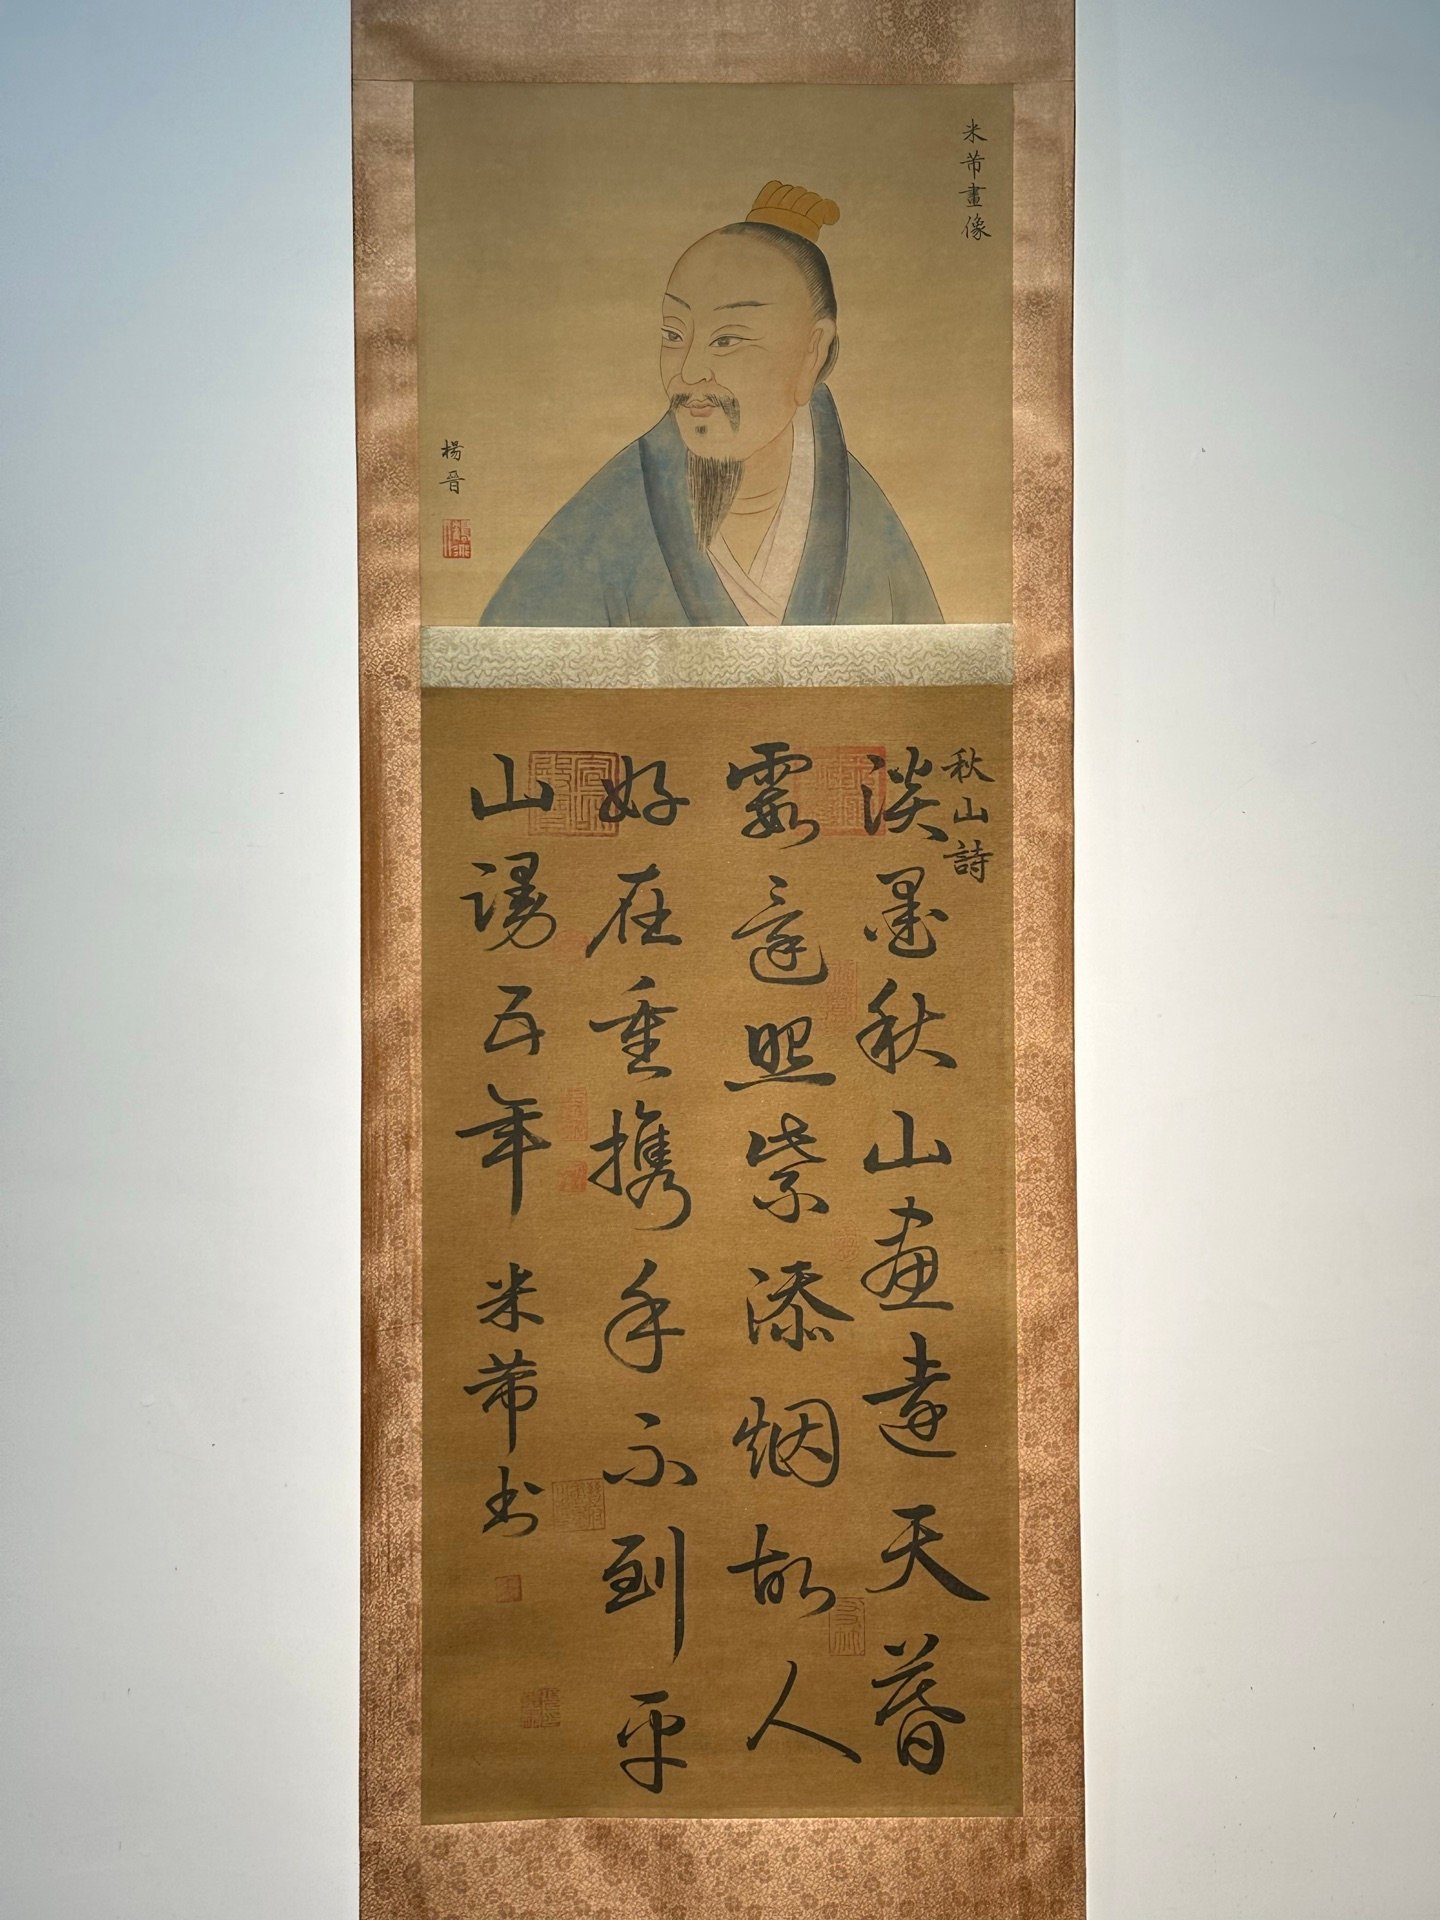 米芾畫像
楊晉
秋山詩
淡墨秋山畫遠天暮
霞還照紫添烟故人
好在重携手不到平
山謾五年 米芾書